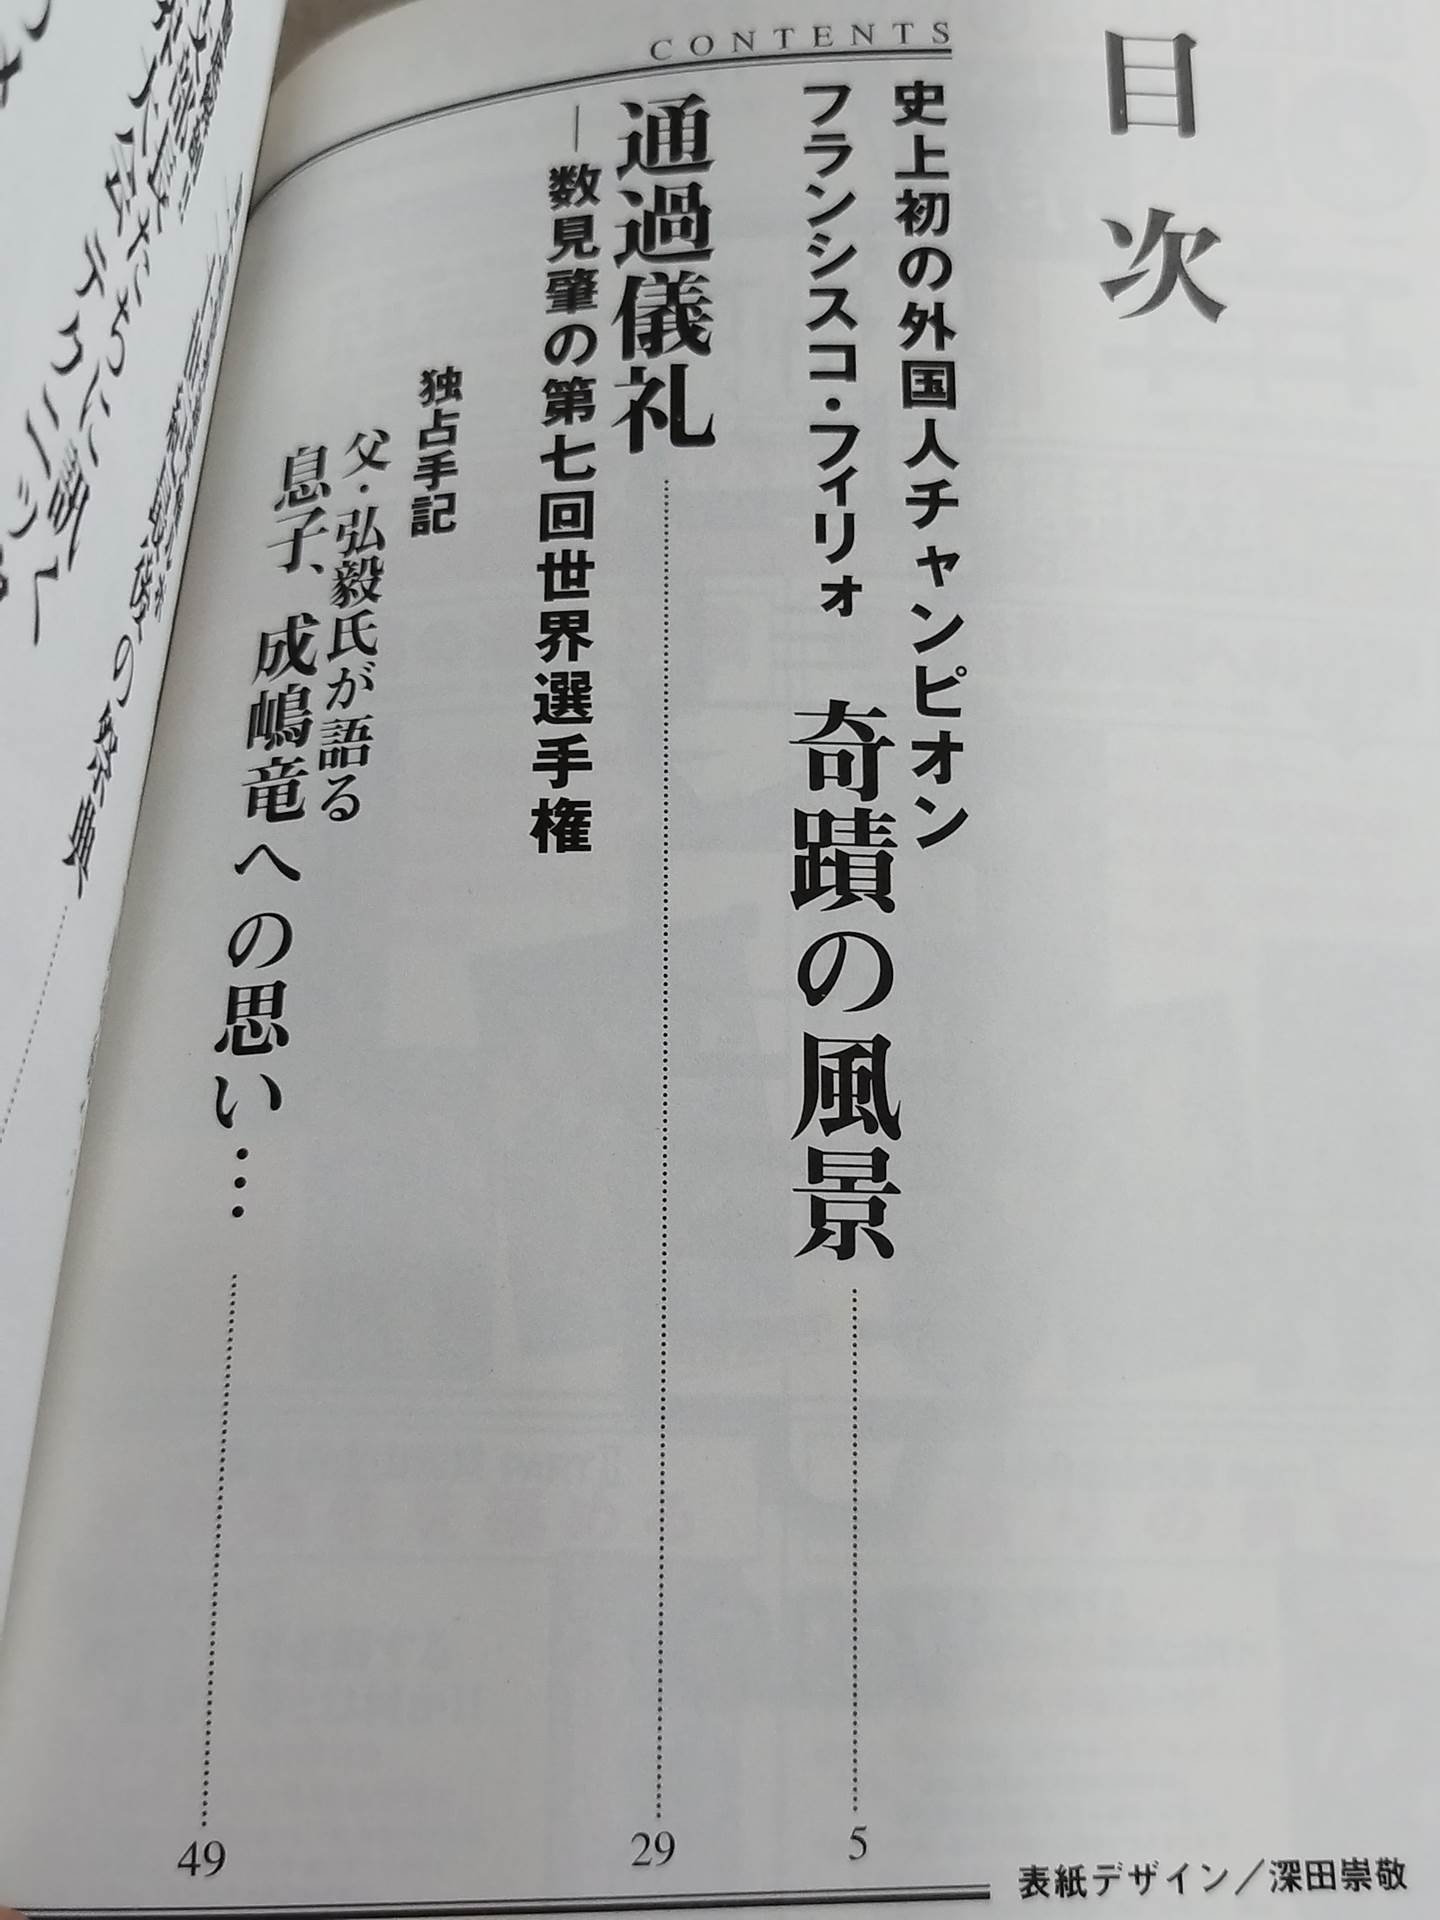 目次
CONTENTS
史上初の外国人チャンピオン
フランシスコ・フィリォ 奇蹟の風景
5
通過儀礼
29
―数見肇の第七回世界選手権
独占手記
父・弘毅氏が語る
息子、成嶋竜への思い…
49
表紙デザイン／深田崇敬